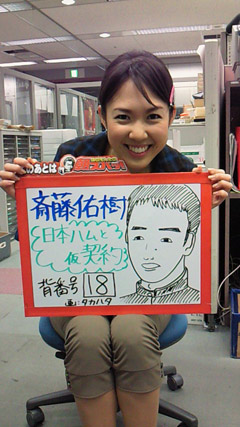 あとは
斎藤佑樹
日本ハムとろ
仮契約
背番号 18
画:タカハタ